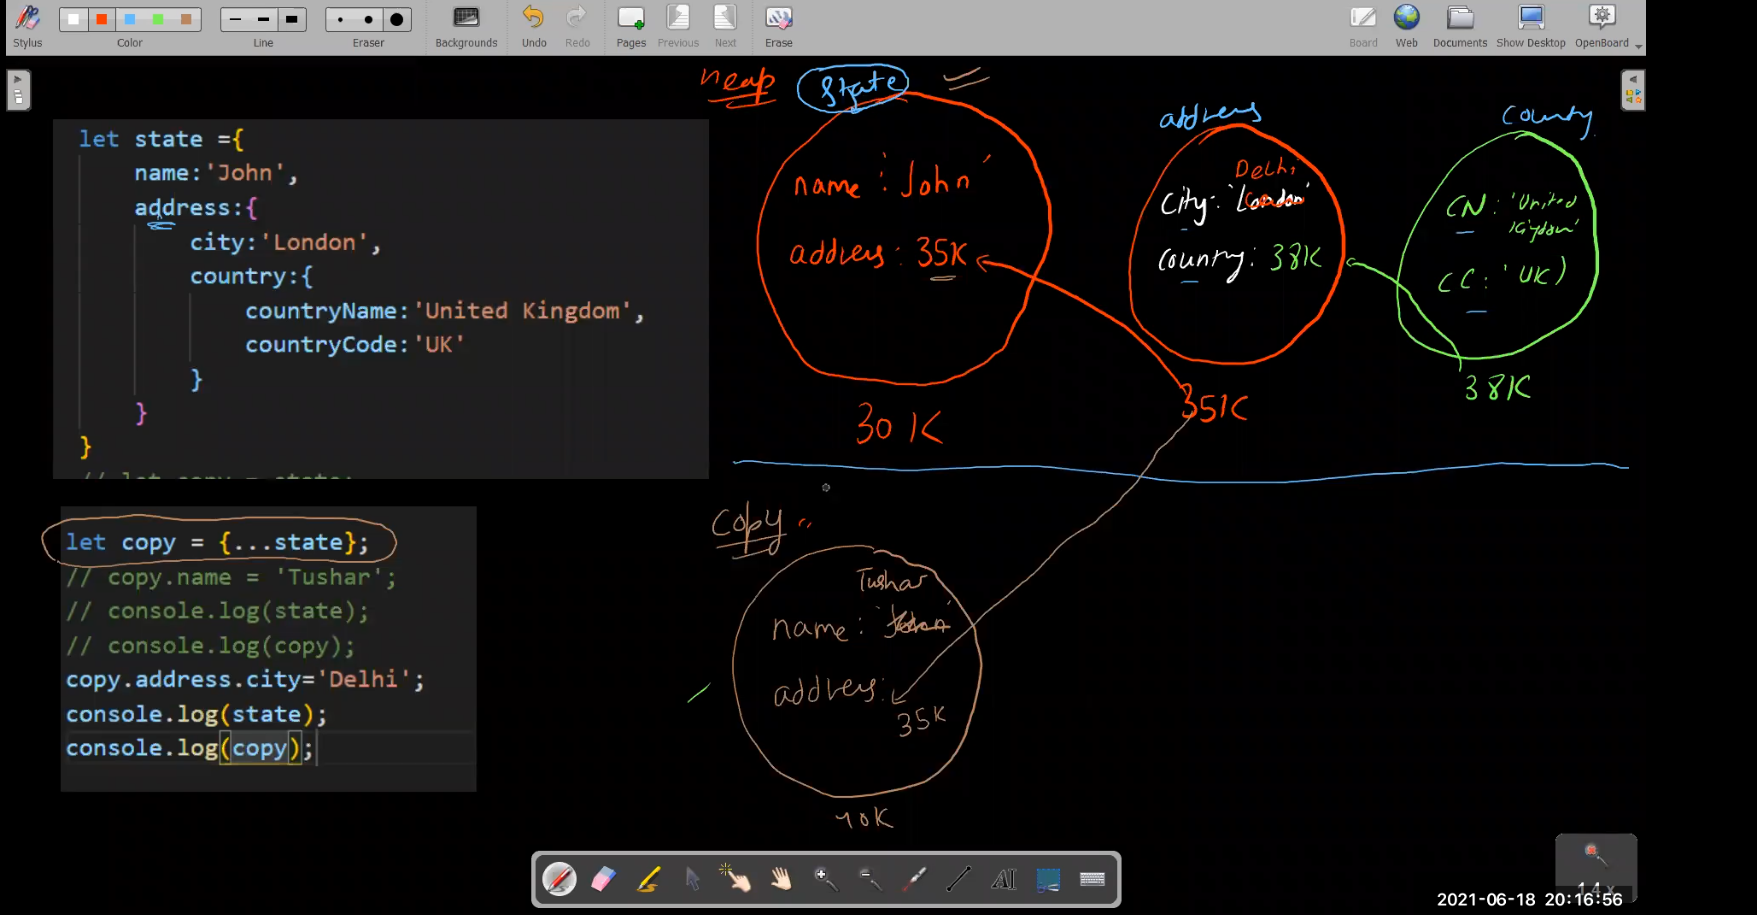 Stylus
Color
Line
Eraser
Backgrounds
Undo
Redo
Pages
Previous
Next
Erase
Board
Web
Documents
Show Desktop
OpenBoard
let state ={
name:'John',
address:{
city:'London',
country:{
countryName:'United Kingdom',
countryCode:'UK'
}
}
}
// let copy = state;
let copy = {...state};
// copy.name = 'Tushar';
// console.log(state);
// console.log(copy);
copy.address.city='Delhi';
console.log(state);
console.log(copy);
heap
state
name : 'John'
address : 35K
30K
address
Delhi
City : 'London'
Country : 38K
35K
County
CN : 'United
Kigdom'
CC : 'UK)
38K
Copy
Tushar
name : 'John'
address :
35K
40K
AI
1.4 x
2021-06-18 20:16:56